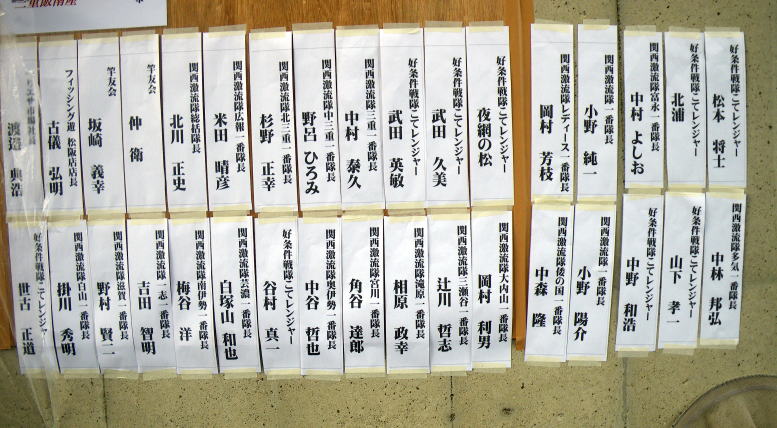 好条件戦隊こてレンジャー
松本 将士
好条件戦隊こてレンジャー
北浦
関西激流隊富永一番隊長
中村 よしお
関西激流隊一番隊長
小野 純一
関西激流隊レディース一番隊長
岡村 芳枝
好条件戦隊こてレンジャー
夜網の松
好条件戦隊こてレンジャー
武田 久美
好条件戦隊こてレンジャー
武田 英敏
関西激流隊三重一番隊長
中村 泰久
関西激流隊中三重一番隊長
野呂 ひろみ
関西激流隊北三重一番隊長
杉野 正幸
関西激流隊広報一番隊長
米田 晴彦
関西激流隊総括隊長
北川 正史
竿友会
仲 衛
竿友会
坂崎 義幸
フィッシング遊 松阪店店長
古儀 弘明
渡邉 典浩
関西激流隊多気一番隊長
中林 邦弘
好条件戦隊こてレンジャー
山下 孝一
好条件戦隊こてレンジャー
中野 和浩
関西激流隊一番隊長
小野 陽介
関西激流隊倭の国一番隊長
中森 隆
関西激流隊大内山一番隊長
岡村 利男
関西激流隊三瀬谷一番隊長
辻川 哲志
関西激流隊滝原一番隊長
相原 政幸
関西激流隊宮川一番隊長
角谷 達郎
関西激流隊奥伊勢一番隊長
中谷 哲也
好条件戦隊こてレンジャー
谷村 真一
関西激流隊芸濃一番隊長
白塚山 和也
関西激流隊南伊勢一番隊長
梅谷 洋
関西激流隊一志一番隊長
吉田 智明
関西激流隊滋賀一番隊長
野村 賢二
関西激流隊白山一番隊長
掛川 秀明
好条件戦隊こてレンジャー
世古 正道